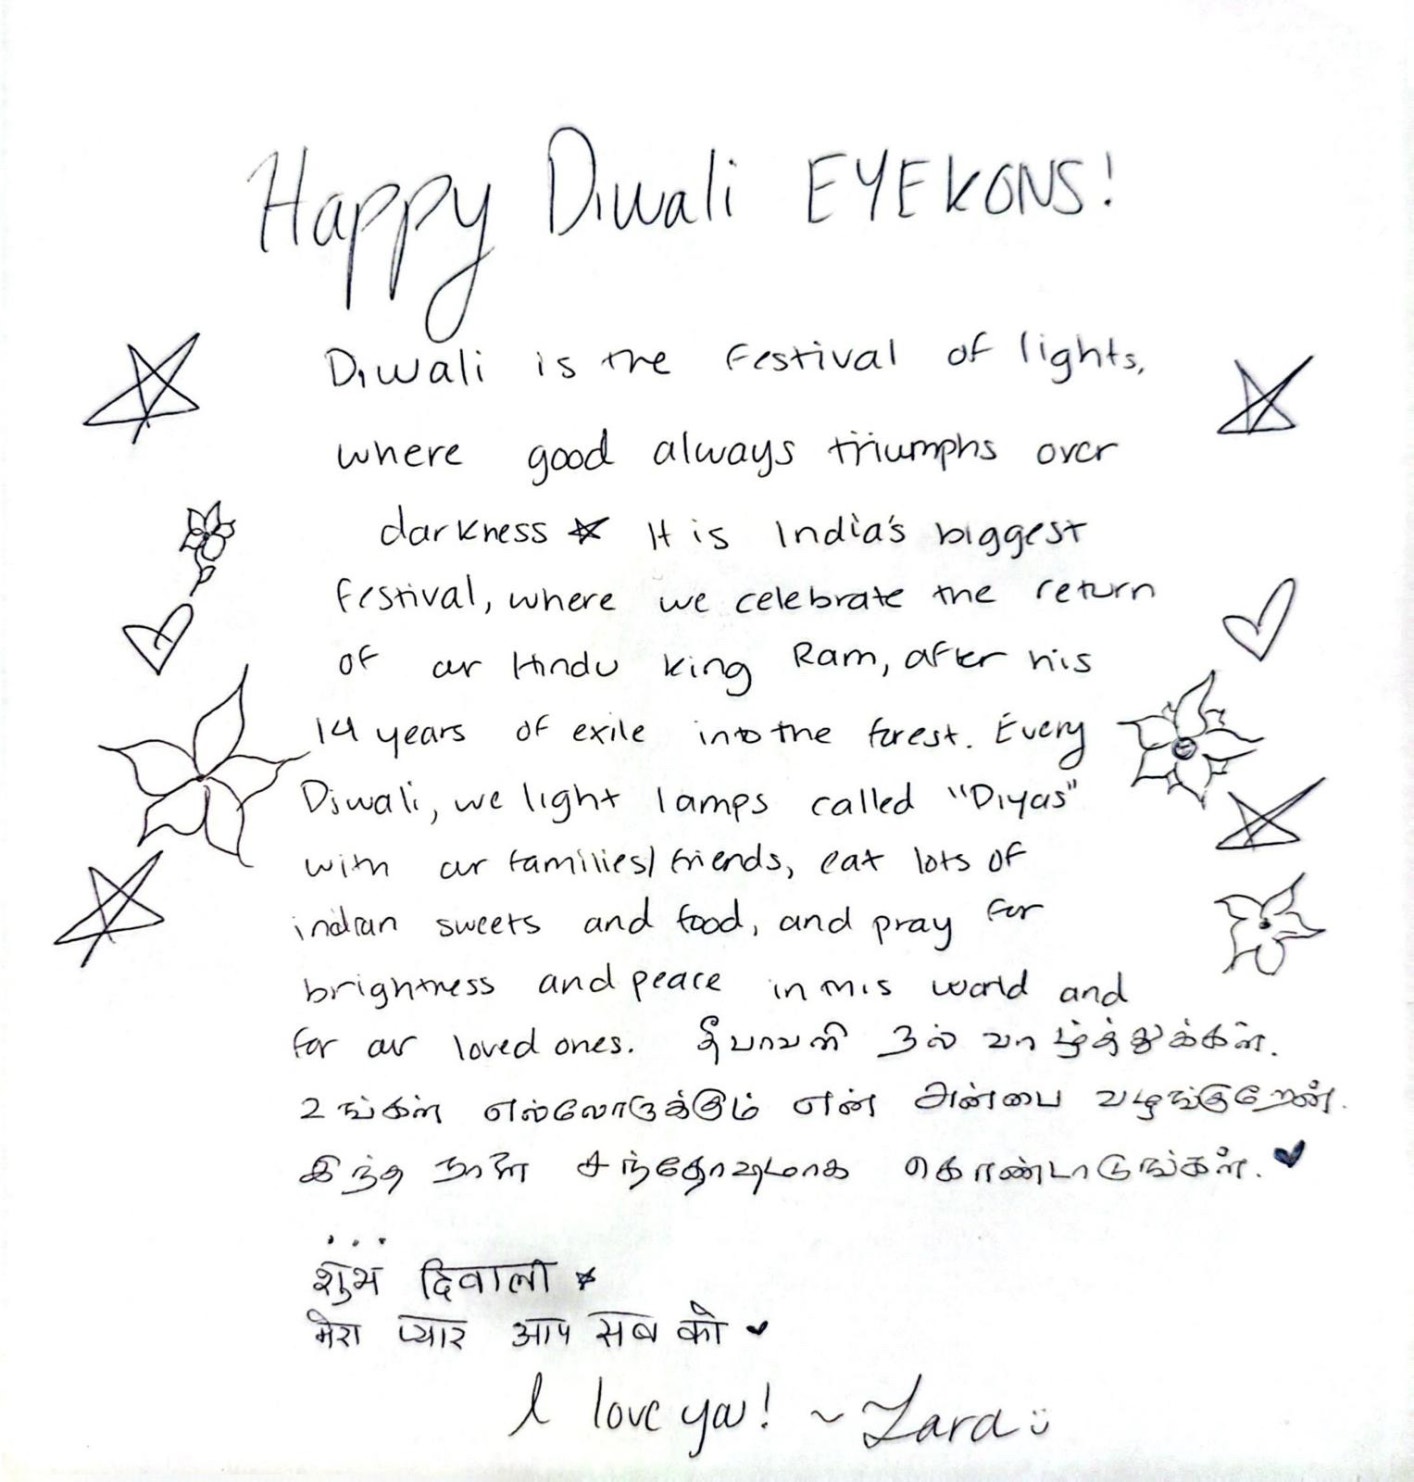 Happy Diwali EYEKONS!
Diwali is the festival of lights,
where good always triumphs over
darkness It is India's biggest
festival, where we celebrate the return
of our Hindu king Ram, after his
14 years of exile into the forest. Every
Diwali, we light lamps called "Diyas"
with our families/friends, eat lots of
indian sweets and food, and pray for
brightness and peace in this world and
for our loved ones. தீபாவளி நல் வாழ்த்துக்கள்.
உங்கள் எல்லோருக்கும் என் அன்பை வழங்குறேன்.
இந்த நாளை சந்தோஷமாக கொண்டாடுங்கள்.
...
शुभ दिवाली
मेरा प्यार आप सब को
I love you! ~Lara